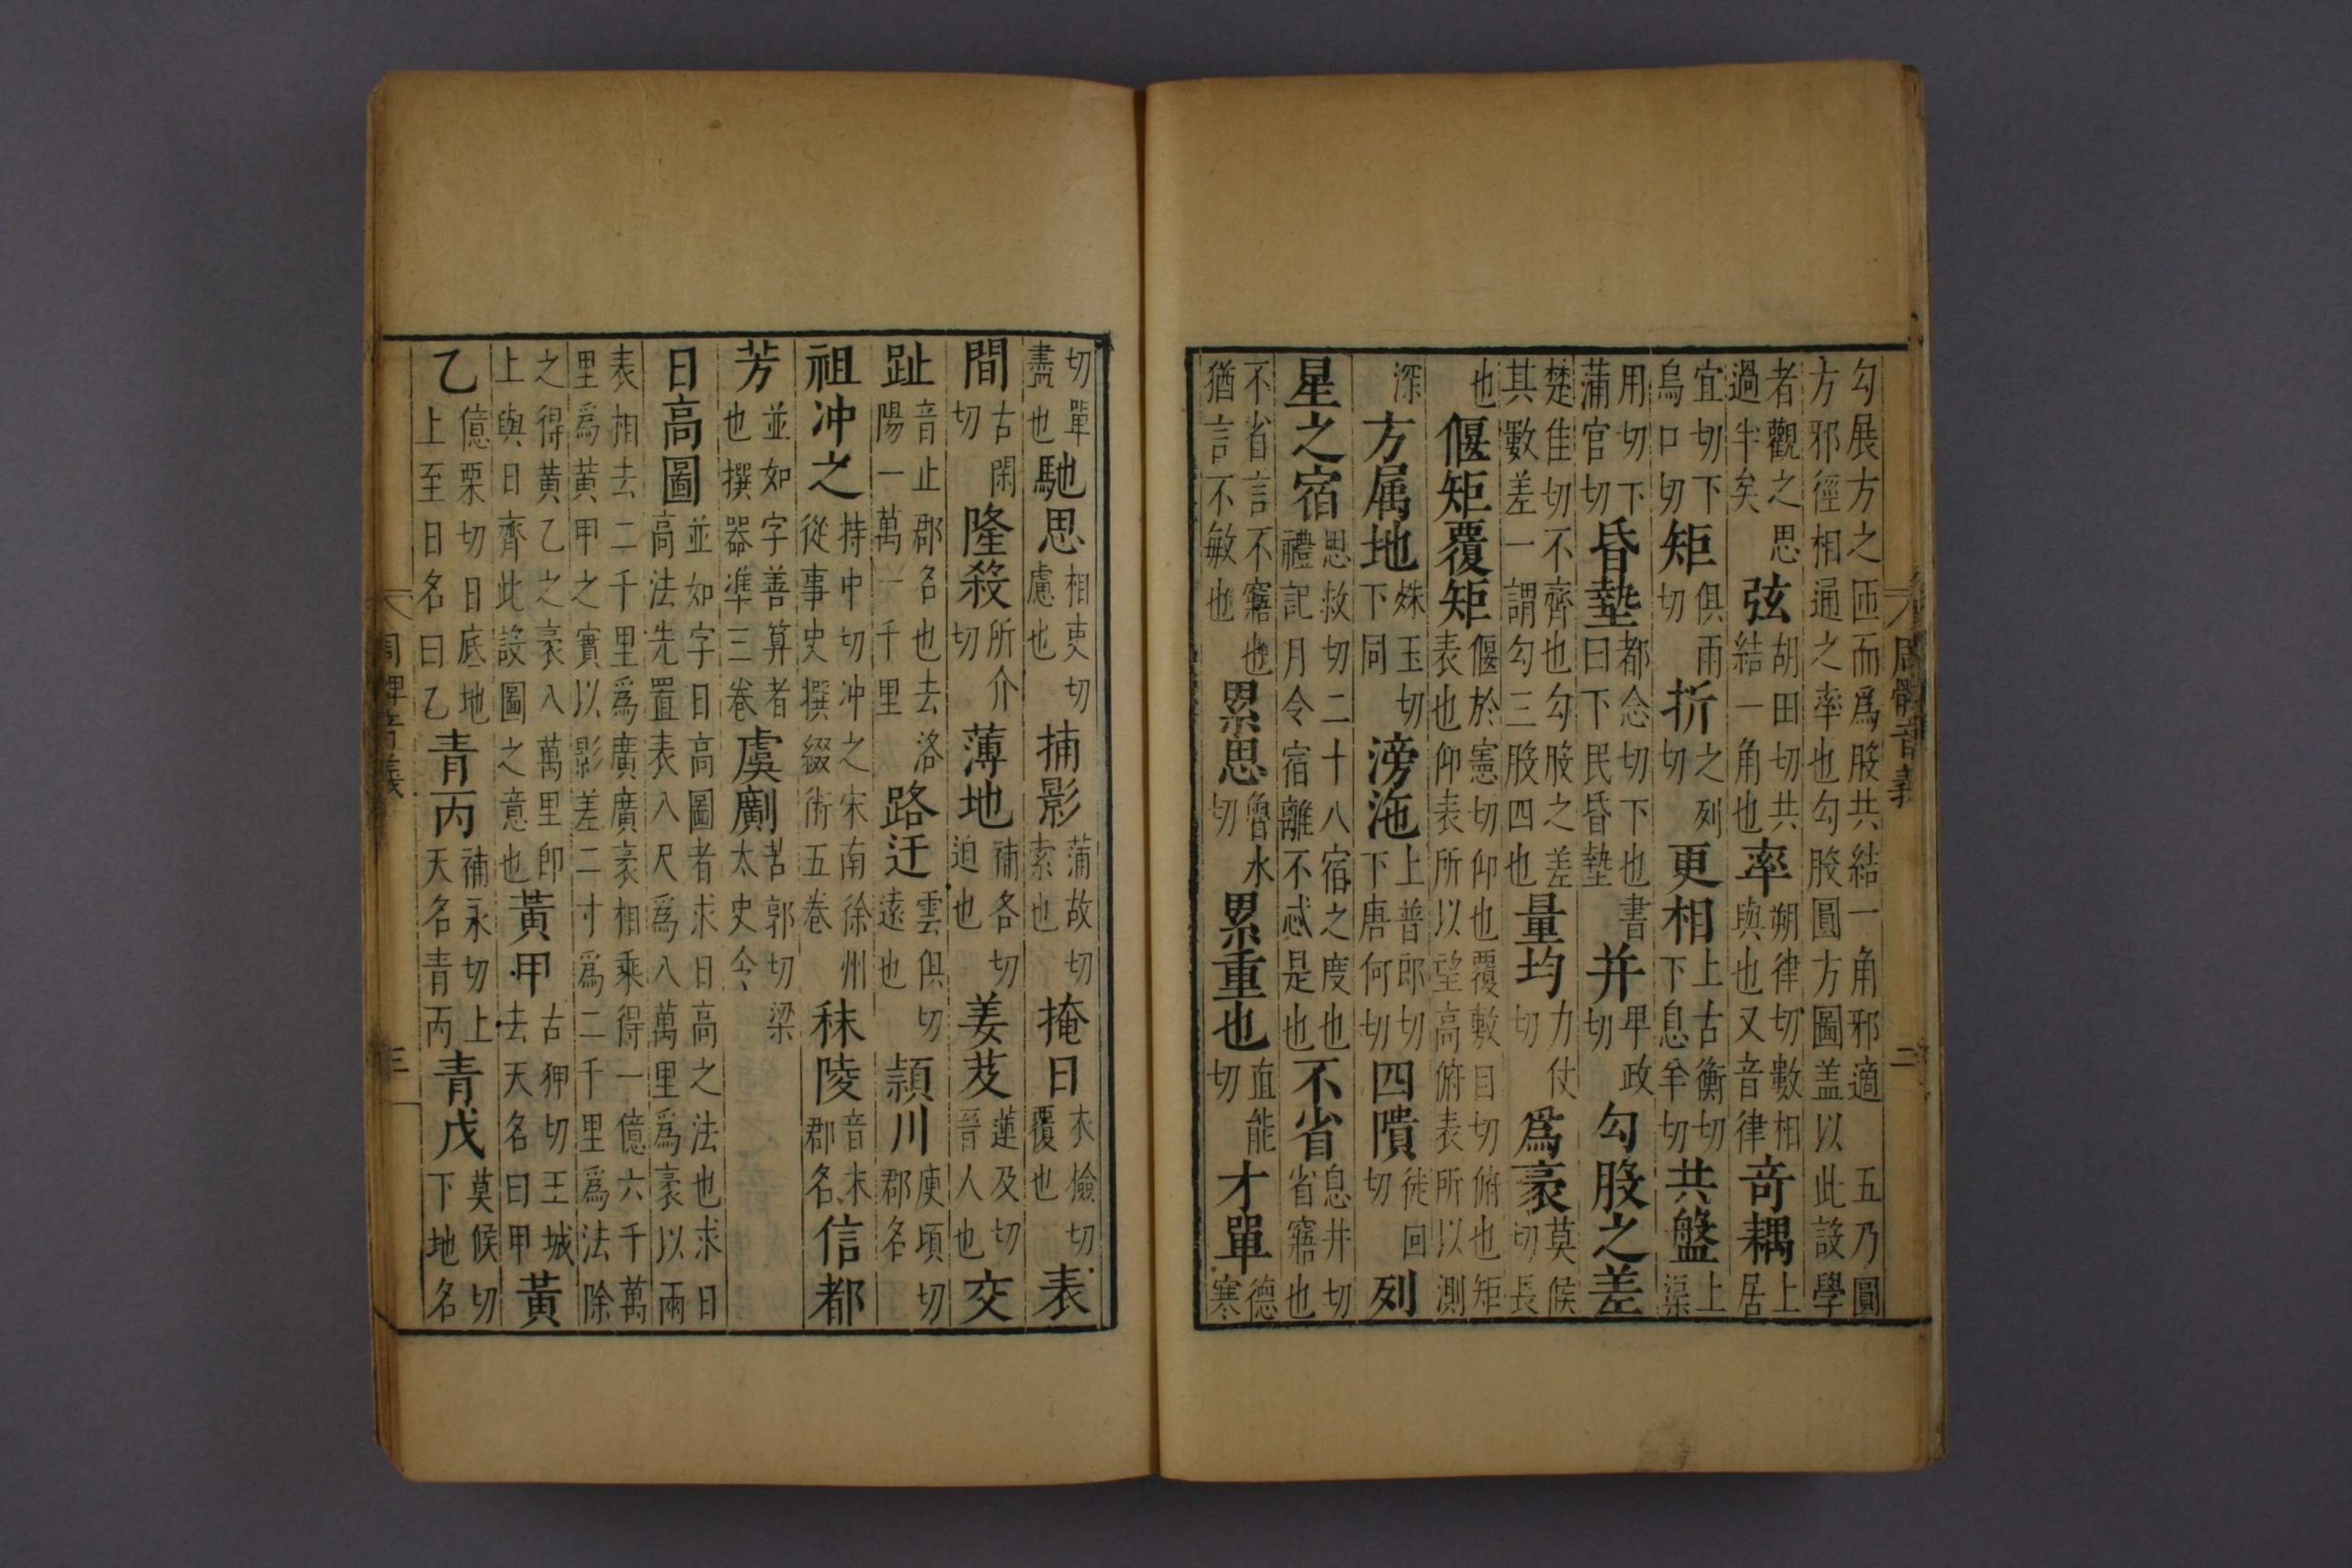 勾展方之匝而爲股共結一角邪適五乃圓方邪徑相通之率也勾股圓方圖盖以此設學
者觀之思過半矣弦胡田切共結一角也率朔律切數相與也又音律奇耦上居
宜切下烏口切矩俱雨切折之列切更相上古衡切下息羊切共盤上渠
用切下蒲官切昏墊都念切下也書曰下民昏墊并卑政切勾股之差
楚佳切不齊也勾股之差其數差一謂勾三股四也量均力仗切爲豪莫候切長
也偃矩覆矩偃於憲切仰也覆敷目切俯也矩表也仰表所以望高俯表所以測
深方属地殊玉切下同滂沲上普郎切下唐何切四隤徒回切列
星之宿思救切二十八宿之度也禮記月令宿離不忒是也不省息井切省寤也
不省言不寤也猶言不敏也累思魯水切累重也直能切才單德寒
周髀音義 二
切單盡也馳思相吏切慮也捕影蒲故切索也掩日衣檢切覆也表
間古閑切隆殺所介切薄地補各切迫也姜岌蓮及切晉人也交
趾音止郡名也去洛陽一萬一千里路迂雲俱切遠也頴川庾頃切郡名
祖冲之持中切冲之宋南徐州從事史撰綴術五巻秣陵音末郡名信都
芳並如字善算者也撰器準三巻虞㔢苦郭切梁太史令
日高圖並如字日高圖者求日高之法也求日高法先置表入尺爲八萬里爲豪以兩
表相去二千里爲廣廣豪相乘得一億六千萬里爲黃甲之實以影差二寸爲二千里爲法除
之得黃乙之豪入萬里卽上與日齊此設圖之意也黃甲古狎切王城去天名曰甲黃
乙億栗切日底地上至日名曰乙青丙補永切上天名青丙青戊莫候切下地名
周髀音義 三